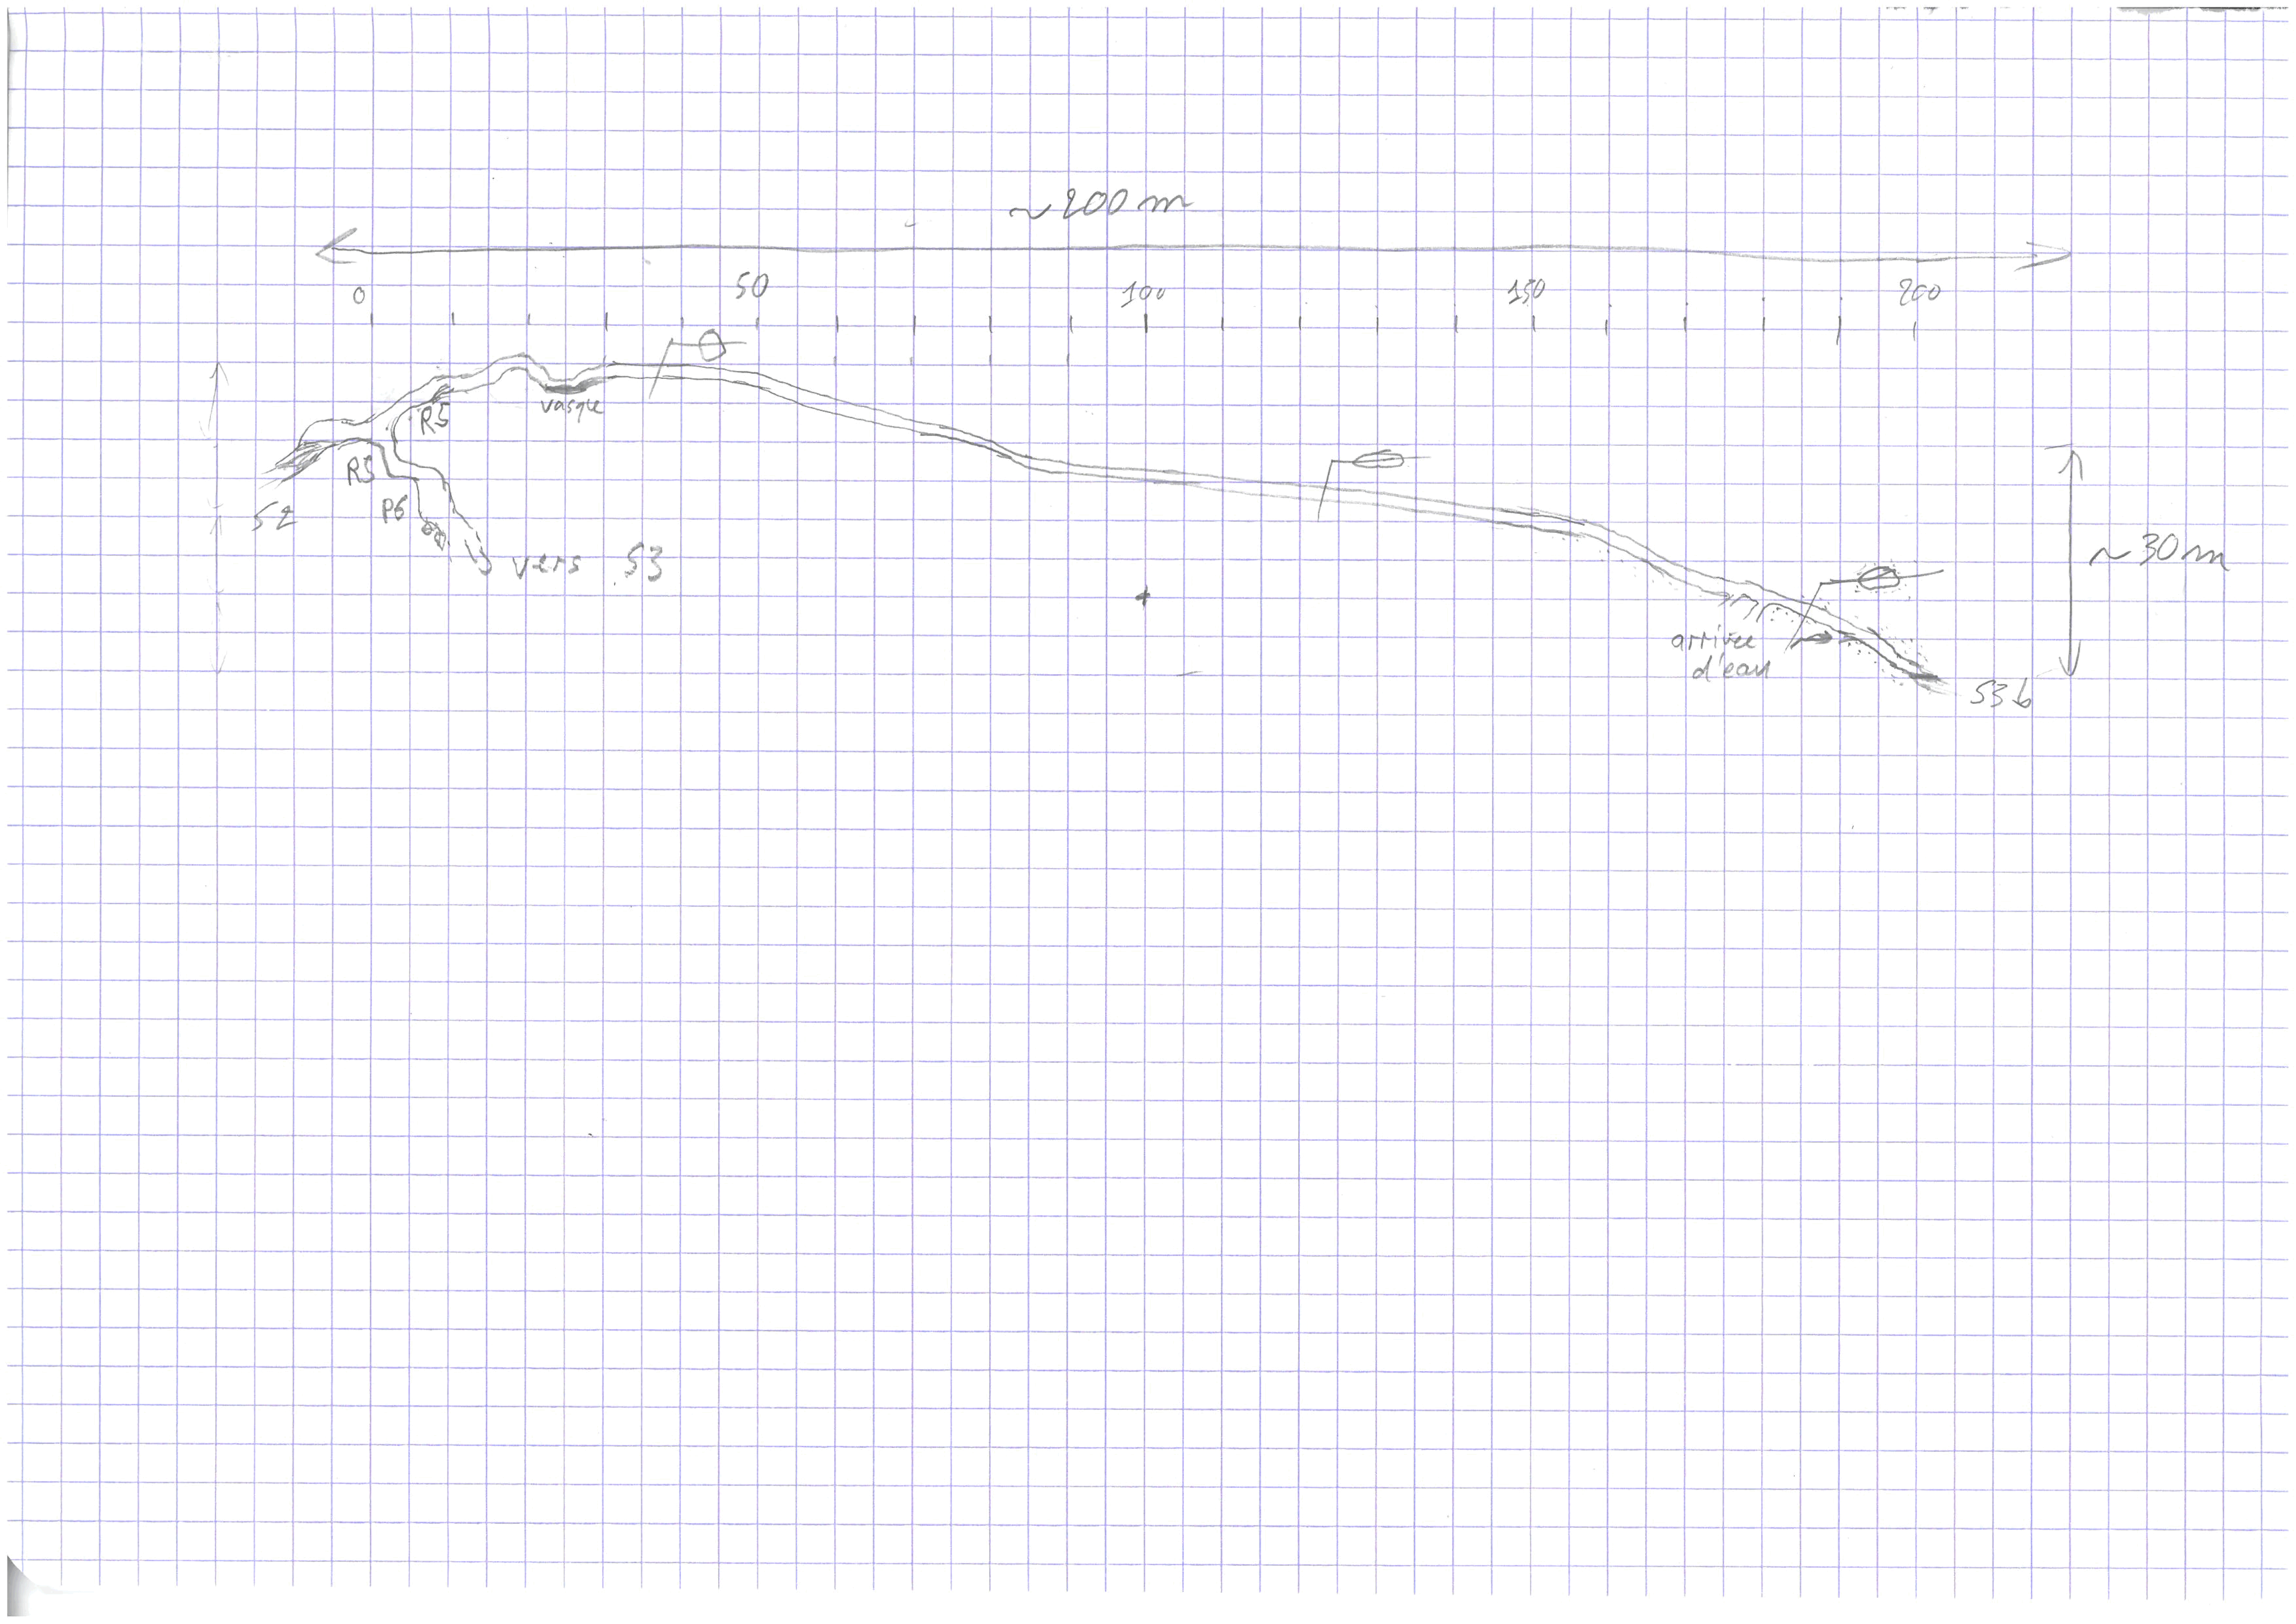 ~200 m
0 50 100 150 200
vasque
R5
R5
S2
P6
vers S3
~30 m
arrivée
d'eau
S3b